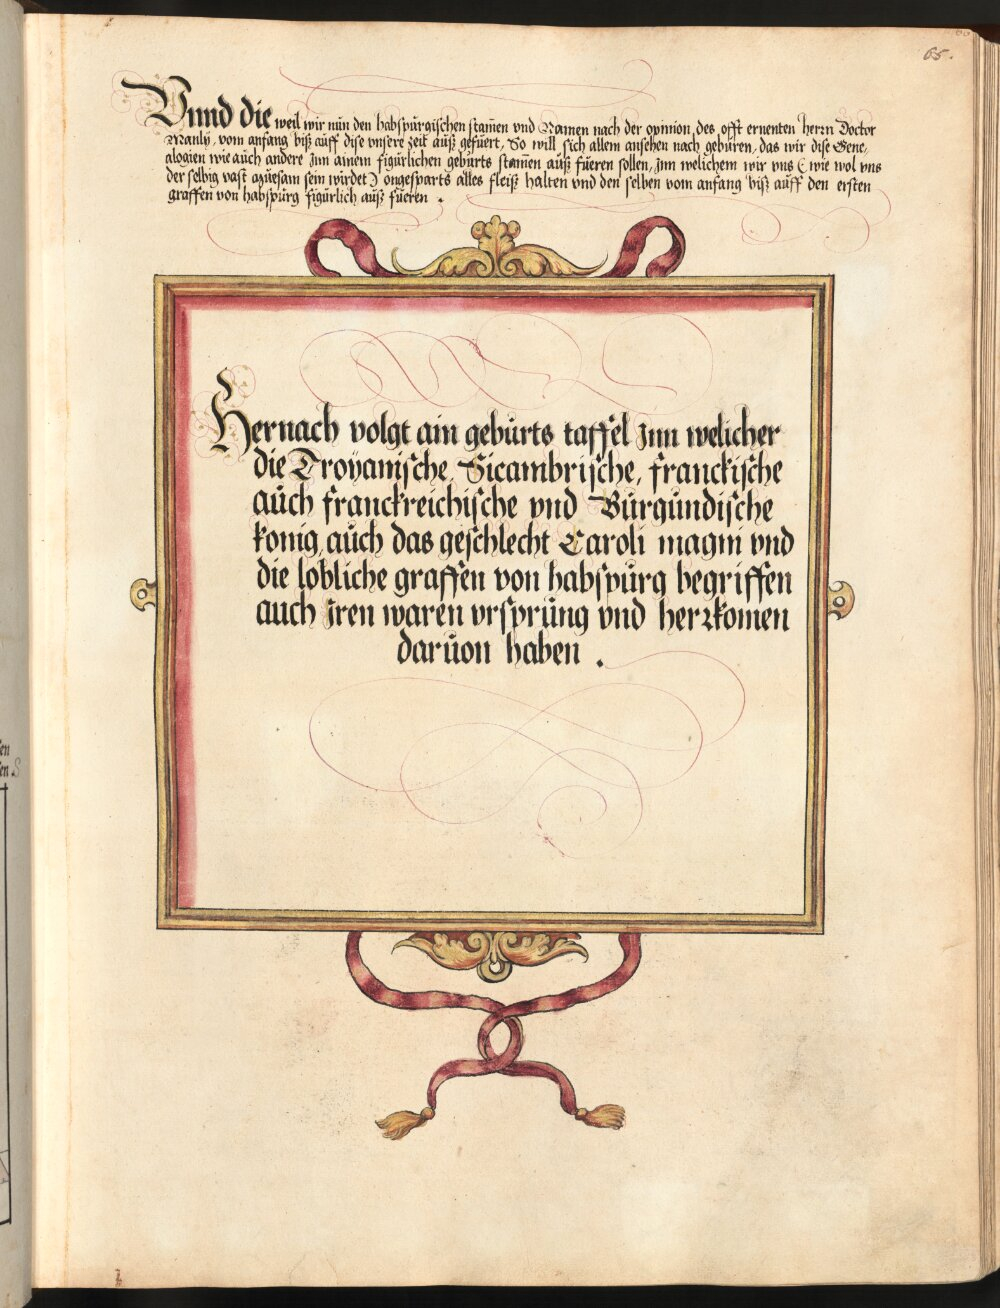 65.
Vnnd die weil wir nŭn den habspŭrgischen stam̄en vnd Namen nach der opinion, des offt ernenten herrn Doctor
Manlij, vom anfang biß aŭff dise vnsere zeit aŭß gefŭert, So will sich allem ansehen nach gebŭren, das wir dise Gene,
alogien wie aŭch andere Jnn ainem figŭrlichen gebŭrts stam̄en aŭß fŭeren sollen, Jnn welichem wir vns (wie wol vns
der selbig vast mŭesam sein wirdet) ongesparts alles fleiß halten vnd den selben vom anfang biß aŭff den ersten
graffen von habspŭrg figŭrlich aŭß fŭeren .
Hernach volgt ain gebŭrts taffel Jnn welicher
die Troyanische, Sicambrische, franckische
aŭch franckreichische vnd Bŭrgŭndische
konig, aŭch das geschlecht Caroli magni vnd
die lobliche graffen von habspŭrg begriffen
aŭch Jren waren vrsprŭng vnd herrkomen
darŭon haben .
en
en S